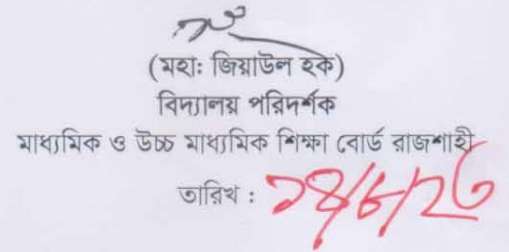 (মহাঃ জিয়াউল হক)
বিদ্যালয় পরিদর্শক
মাধ্যমিক ও উচ্চ মাধ্যমিক শিক্ষা বোর্ড রাজশাহী
তারিখ :